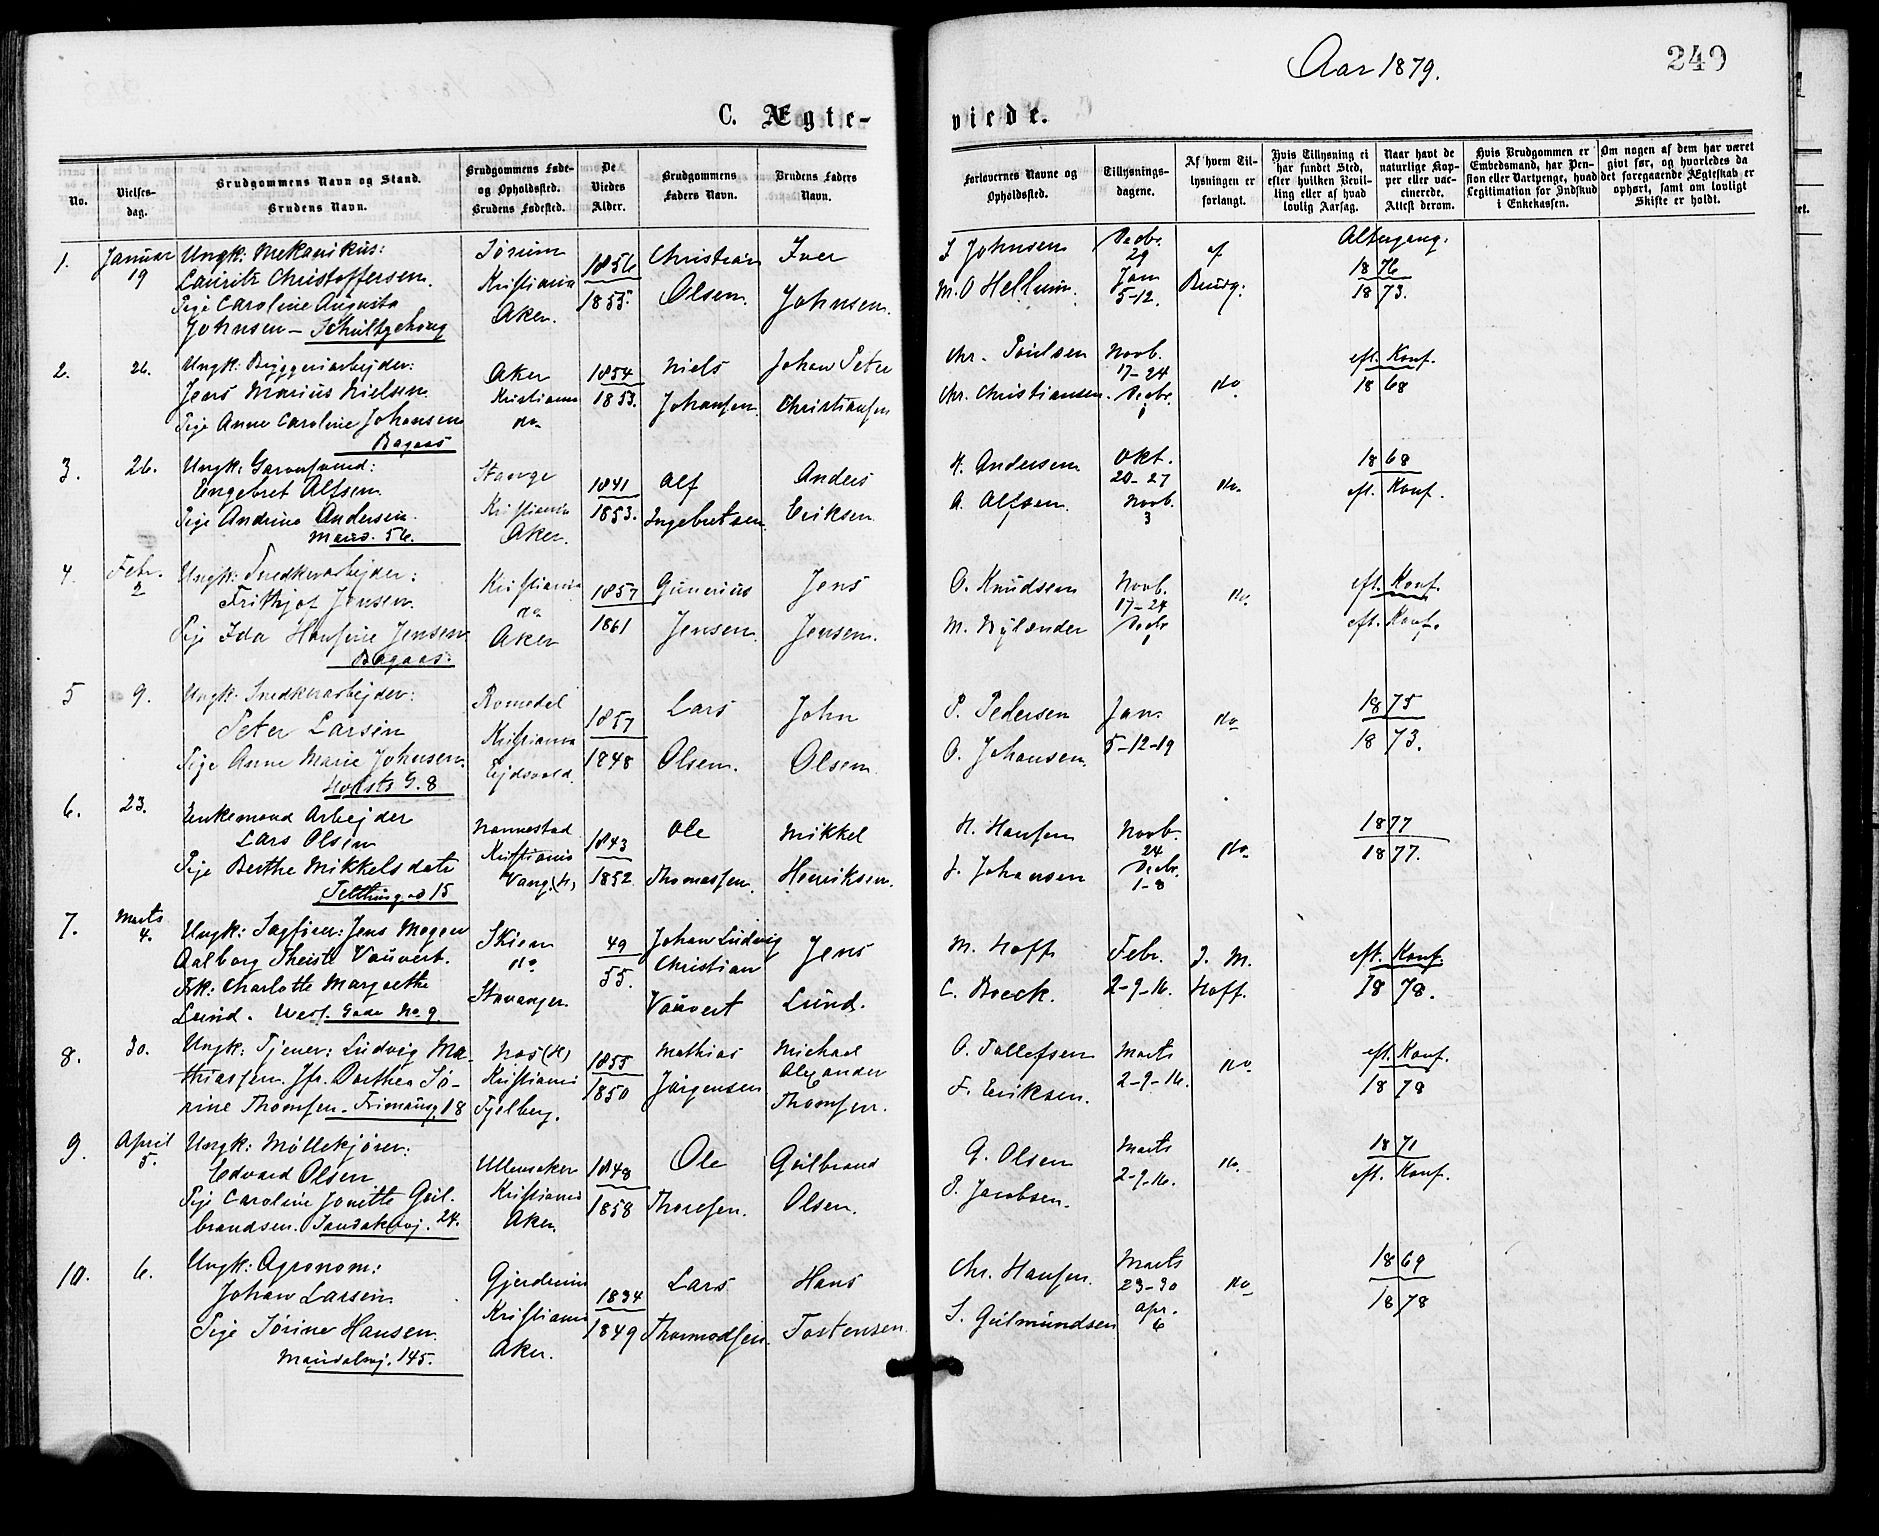 Aar 1879.
249
C. Ægte-
viede.
No.
Vielses-
dag.
Brudgommens Navn og Stand.
Brudens Navn.
Brudgommens Føde-
og Opholdssted.
Brudens Fødested.
De
Viedes
Alder.
Brudgommens
Faders Navn.
Brudens Faders
Navn.
Forlovernes Navne og
Opholdssted.
Tillysnings-
dagene.
Af hvem Til-
lysningen er
forlangt.
Hvis Tillysning ei
har fundet Sted,
efter hvilken Bevil-
ling eller af hvad
lovlig Aarsag.
Naar havt de
naturlige Kop-
per eller vac-
cinerede.
Attest derom.
Hvis Brudgommen er
Embedsmand, har Pen-
sion eller Vartpenge, hvad
Legitimation for Indskud
i Enkekassen.
Om nogen af dem har været
givt før, og hvorledes da
det foregaaende Ægteskab er
ophørt, samt om lovligt
Skifte er holdt.
1.
Januar
19
Ungk: Mekanikus:
Lauritz Christoffersen.
Pige Caroline Augusta
Johnsen - Schultzehaug
Sørum
Kristiania
Aker.
1856
1855.
Christian
Olsen.
Iver
Johnsen.
I Johnsen
M. O Hellum.
Decbr.
29
Jan
5-12.
af
Brudg:
Altergang.
1876
1873.
2.
26.
Ungk: Bryggeriarbejder:
Jens Marius Nielsen.
Pige Anne Caroline Johansen
Bagaas
Aker
Kristiania
do.
1854
1853.
Niels
Johansen.
Johan Peter
Christiansen
Chr. Poulsen
Chr. Christiansen.
Novb.
17-24
Decbr.
1
do.
eft. Konf.
1868
3.
26.
Ungk: Garversvend:
Engebret Alfsen.
Pige Andrine Andersen.
Maus. 56.
Stange
Kristiania
Aker.
1841
1853.
Alf
Ingebretsen.
Anders
Eriksen.
H. Andersen
A. Alfsen.
Okt.
20-27
Novb.
3
do.
1868
eft. Konf.
4.
Febr.
2
Ungk: Snedkerarbejder:
Frithjof Jensen.
Pige Ida Hansine Jensen
Bagaas.
Kristiania
do.
Aker
1857
1861
Gunerius
Jensen.
Jens
Jensen.
O. Knudsen
M. Bylænder
Novb.
17-24
Decbr
1
do.
eft. Konf.
eft. Konf.
5
9.
Ungk: Snedkerarbejder:
Peter Larsen
Pige Anne Marie Johnsen.
Holsts G. 8
Romedal
Kristiania
Ejdsvold.
1857
1848
Lars
Olsen.
John
Olsen.
P. Pedersen
O. Johansen.
Jan.
5-12-19
do
1875
1873.
6.
23.
Enkemand Arbejder
Lars Olsen
Pige Berthe Mikkelsdatr
15
Nannestad
Kristiania
Vang (H)
1843
1852
Ole
Thomassen.
Mikkel
Henriksen.
H. Hansen
J. Johansen
Novb.
24
Decbr.
1-8
do.
1877
1877.
7.
Marts
4.
Ungk: Sagfører: Jens Mogen
Aalborg Theiste Vauvert.
Frk: Charlotte Margrethe
Lund. West. Gade No 9.
Skien
do
Stavanger.
49
55.
Johan Ludvig
Christian
Vauvert
Jens
Lund.
M. Hoff
C. Boeck.
Febr.
2-9-16.
J. M.
Hoff.
eft. Konf.
1878.
8.
30.
Ungk: Tjener: Ludvig Ma-
thiassen. Jfr. Dorthea Sø-
rine Thomsen. Frimansg. 18
Næs (H)
Kristiania
Fjelberg.
1855
1850
Mathias
Jørgensen
Michael
Alexander
Thomsen.
O. Tollefsen
F. Eriksen.
Marts
2-9-16.
do
eft. Konf.
1878
9.
April
5.
Ungk: Møllekjører:
Edvard Olsen
Pige Caroline Jonette Gul-
brandsen. Sandakervj. 24.
Ullensaker
Kristiania
Aker.
1848
1858
Ole
Thoresen.
Gulbrand
Olsen.
G. Olsen
P. Jacobsen.
Marts
2-9-16.
do.
1871
eft. Konf.
10.
6.
Ungk: Agronom:
Johan Larsen.
Pige Sørine Hansen.
Maridalsvj. 145.
Gjerdrum
Kristiania
Aker.
1834
1849
Lars
Thormodsen.
Hans
Tostensen.
Chr. Hansen.
S. Gulmundsen
Marts
23-30
Apr.
6
do
1869
1878